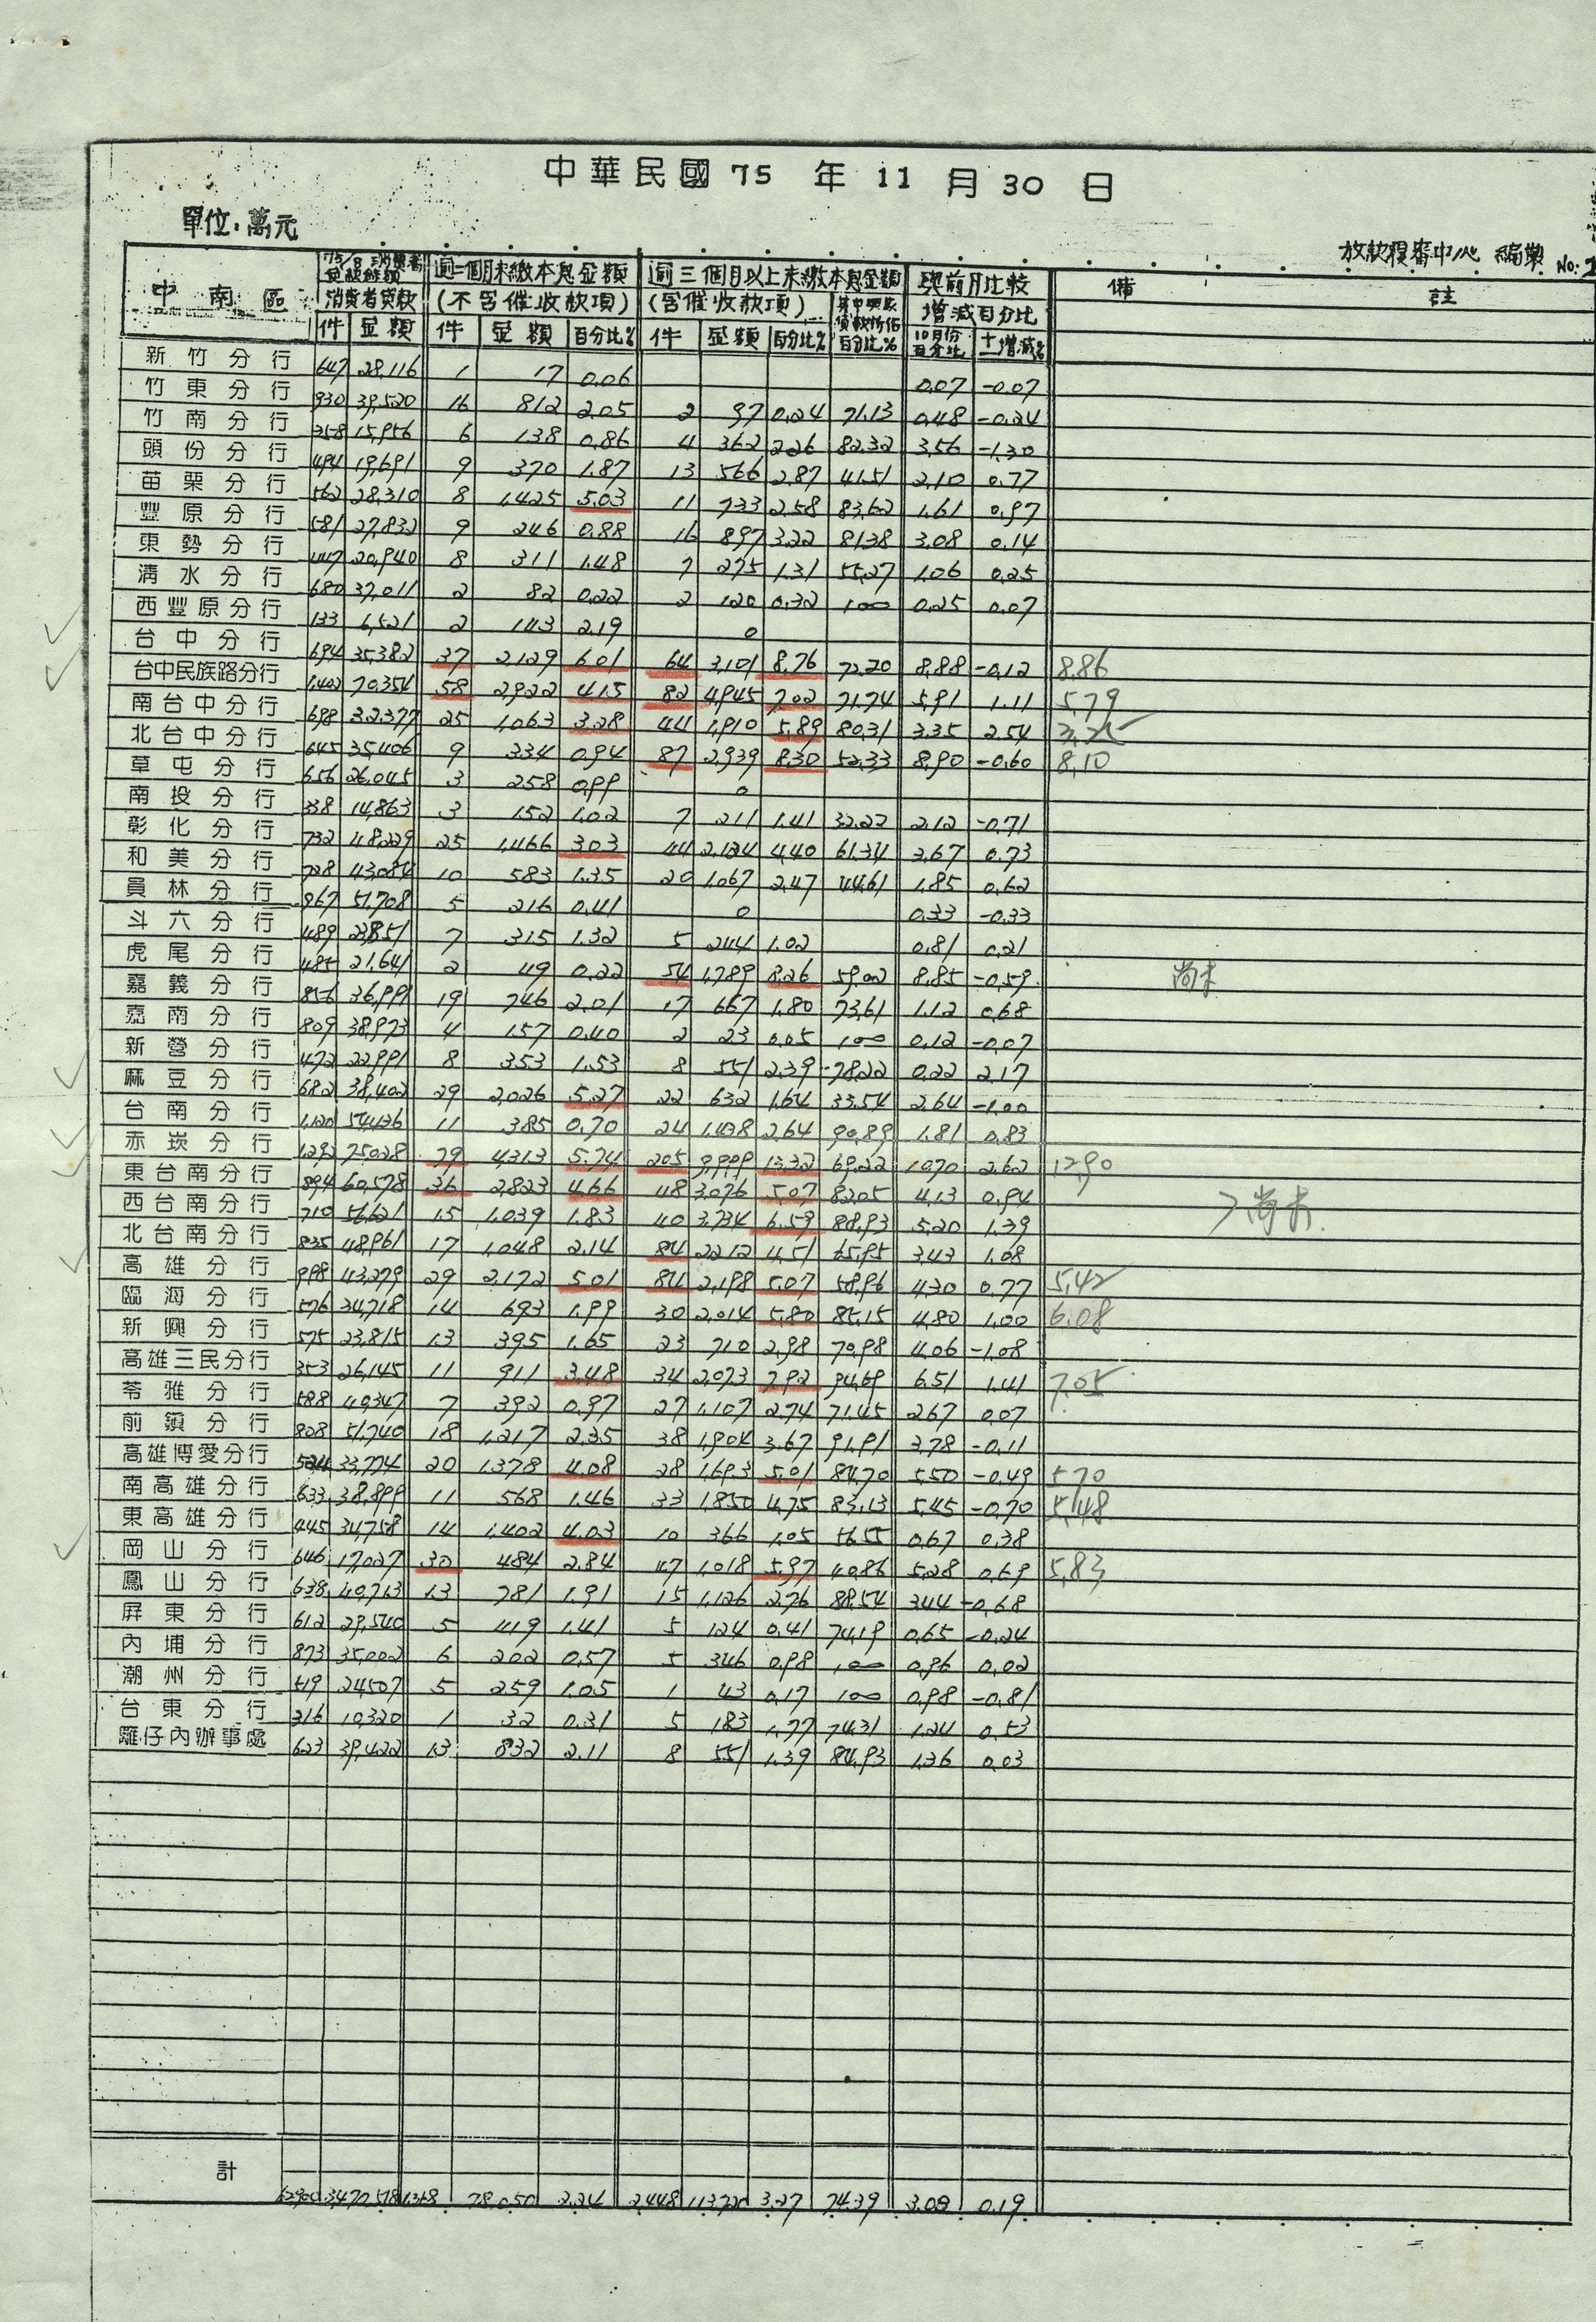 中華民國 75 年 11 月 30 日
單位：萬元
放款覆審中心 編製 No: 2
中南區 消費者貸款 逾三個月未繳本息金額 逾三個月以上未繳本息金額 與前月比較 備註
(不含催收款項) (含催收款項) 增減百分比
件 金額 件 金額 百分比% 件 金額 百分比% 百分比% 10月份百分比 +-增減%
新竹分行 647 28,116 1 17 0.06 0.07 -0.07
竹東分行 930 39,520 16 812 2.05 2 97 0.24 71.13 0.48 -0.24
竹南分行 258 15,956 6 138 0.86 4 362 2.26 82.32 3.56 -1.30
頭份分行 494 19,691 9 370 1.87 13 566 2.87 41.51 2.10 0.77
苗栗分行 562 28,310 8 1,425 5.03 11 733 2.58 83.62 1.61 0.97
豐原分行 581 27,832 9 246 0.88 16 897 3.22 81.38 3.08 0.14
東勢分行 447 20,940 8 311 1.48 7 275 1.31 55.27 1.06 0.25
清水分行 680 37,011 2 82 0.22 2 120 0.32 100 0.25 0.07
西豐原分行 133 6,521 2 143 2.19 0
台中分行 694 35,382 37 2,129 6.01 64 3,101 8.76 72.20 8.88 -0.12 8.86
台中民族路分行 1,402 70,354 58 2,922 4.15 82 4,945 7.02 71.74 5.91 1.11 5.79
南台中分行 698 32,377 25 1,063 3.28 44 1,910 5.89 80.31 3.35 2.54
北台中分行 645 35,406 9 334 0.94 87 2,939 8.30 52.33 8.90 -0.60 8.10
草屯分行 656 26,045 3 258 0.99 0
南投分行 338 14,863 3 152 1.02 7 211 1.41 32.22 2.12 -0.71
彰化分行 732 48,229 25 1,466 3.03 44 2,124 4.40 61.34 3.67 0.73
和美分行 728 43,084 10 583 1.35 20 1,067 2.47 44.61 1.85 0.62
員林分行 967 51,708 5 216 0.41 0 0.33 -0.33
斗六分行 489 23,851 7 315 1.32 5 244 1.02 0.81 0.21
虎尾分行 485 21,641 2 49 0.22 54 1,789 8.26 59.02 8.85 -0.59 尚未
嘉義分行 856 36,991 19 746 2.01 17 667 1.80 73.61 1.12 0.68
嘉南分行 809 38,973 4 157 0.40 2 23 0.05 100 0.12 -0.07
新營分行 472 22,991 8 353 1.53 8 551 2.39 78.22 0.22 2.17
麻豆分行 682 38,402 29 2,026 5.27 22 632 1.64 33.54 2.64 -1.00
台南分行 1,120 54,436 11 385 0.70 24 1,438 2.64 90.89 1.81 0.83
赤崁分行 1,292 75,028 79 4,313 5.74 205 9,999 13.32 69.22 10.70 2.62 12.90
東台南分行 894 60,578 36 2,823 4.66 48 3,076 5.07 82.05 4.13 0.94
西台南分行 710 56,621 15 1,039 1.83 40 3,734 6.59 88.93 5.20 1.39 尚未
北台南分行 835 48,961 17 1,048 2.14 84 2,212 4.51 65.95 3.43 1.08
高雄分行 998 43,279 29 2,172 5.01 84 2,198 5.07 58.96 4.30 0.77 5.42
臨海分行 576 34,718 14 693 1.99 30 2,014 5.80 85.15 4.80 1.00 6.08
新興分行 575 23,815 13 395 1.65 23 710 2.98 70.98 4.06 -1.08
高雄三民分行 353 26,145 11 911 3.48 34 2,073 7.92 94.69 6.51 1.41 7.05
苓雅分行 588 40,347 7 392 0.97 27 1,107 2.74 71.45 2.67 0.07
前鎮分行 828 51,740 18 1,217 2.35 38 1,904 3.67 91.91 3.78 -0.11
高雄博愛分行 524 33,774 20 1,378 4.08 28 1,693 5.01 84.70 5.50 -0.49 5.70
南高雄分行 633 38,899 11 568 1.46 33 1,850 4.75 83.13 5.45 -0.70 5.48
東高雄分行 445 34,758 14 1,402 4.03 10 366 1.05 56.55 0.67 0.38
岡山分行 646 17,027 30 484 2.84 47 1,018 5.97 40.86 5.28 0.69 5.83
鳳山分行 638 40,713 13 781 1.91 15 1,126 2.76 88.54 3.44 -0.68
屏東分行 612 29,540 5 419 1.41 5 124 0.41 74.19 0.65 -0.24
內埔分行 873 35,002 6 202 0.57 5 346 0.98 100 0.96 0.02
潮州分行 519 24,507 5 259 1.05 1 43 0.17 100 0.98 -0.81
台東分行 216 10,320 1 32 0.31 5 183 1.77 74.31 1.24 0.53
騹仔內辦事處 623 39,422 13 832 2.11 8 551 1.39 84.93 1.36 0.03
計 78,050 2.24 2,448 113,720 3.27 74.39 3.08 0.19